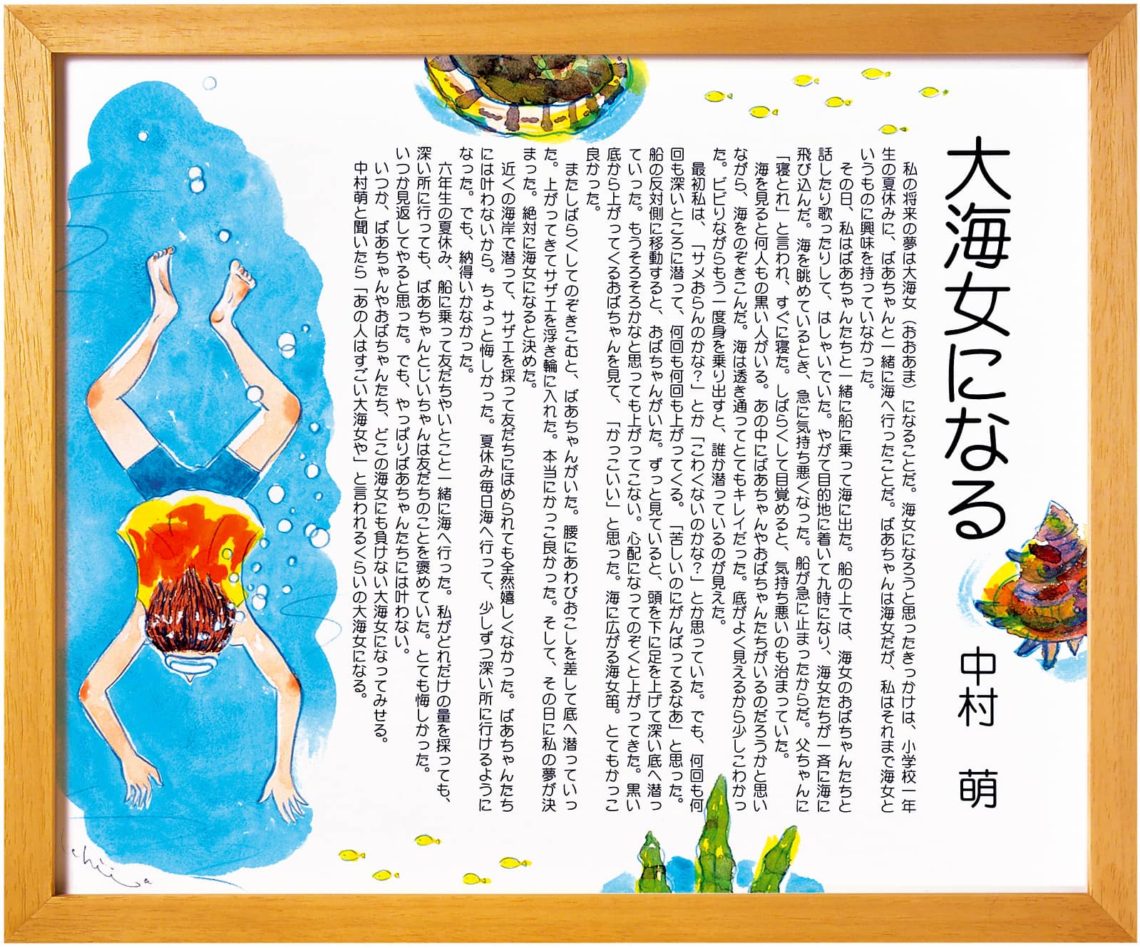 大海女になる
中村 萌
私の将来の夢は大海女（おおあま）になることだ。海女になろうと思ったきっかけは、小学校一年
生の夏休みに、ばあちゃんと一緒に海へ行ったことだ。ばあちゃんは海女だが、私はそれまで海女と
いうものに興味を持っていなかった。
その日、私はばあちゃんたちと一緒に船に乗って海に出た。船の上では、海女のおばちゃんたちと
話したり歌ったりして、はしゃいでいた。やがて目的地に着いて九時になり、海女たちが一斉に海に
飛び込んだ。海を眺めているとき、急に気持ち悪くなった。船が急に止まったからだ。父ちゃんに
「寝とれ」と言われ、すぐに寝た。しばらくして目覚めると、気持ち悪いのも治まっていた。
海を見ると何人もの黒い人がいる。あの中にばあちゃんやおばちゃんたちがいるのだろうかと思い
ながら、海をのぞきこんだ。海は透き通ってとてもキレイだった。底がよく見えるから少しこわかっ
た。ビビりながらもう一度身を乗り出すと、誰か潜っているのが見えた。
最初私は、「サメおらんのかな？」とか「こわくないのかな？」とか思っていた。でも、何回も何
回も深いところに潜って、何回も何回も上がってくる。「苦しいのにがんばってるなあ」と思った。
船の反対側に移動すると、おばちゃんがいた。ずっと見ていると、頭を下に足を上げて深い底へ潜っ
ていった。もうそろそろかなと思っても上がってこない。心配になってのぞくと上がってきた。黒い
底から上がってくるおばちゃんを見て、「かっこいい」と思った。海に広がる海女笛。とてもかっこ
良かった。
またしばらくしてのぞきこむと、ばあちゃんがいた。腰にあわびおこしを差して底へ潜っていっ
た。上がってきてサザエを浮き輪に入れた。本当にかっこ良かった。そして、その日に私の夢が決
まった。絶対に海女になると決めた。
近くの海岸で潜って、サザエを採って友だちにほめられても全然嬉しくなかった。ばあちゃんたち
には叶わないから。ちょっと悔しかった。夏休み毎日海へ行って、少しずつ深い所に行けるように
なった。でも、納得いかなかった。
六年生の夏休み、船に乗って友だちやいとこと一緒に海へ行った。私がどれだけの量を採っても、
深い所に行っても、ばあちゃんとじいちゃんは友だちのことを褒めていた。とても悔しかった。
いつか見返してやると思った。でも、やっぱりばあちゃんたちには叶わない。
いつか、ばあちゃんやおばちゃんたち、どこの海女にも負けない大海女になってみせる。
中村萌と聞いたら「あの人はすごい大海女や」と言われるくらいの大海女になる。